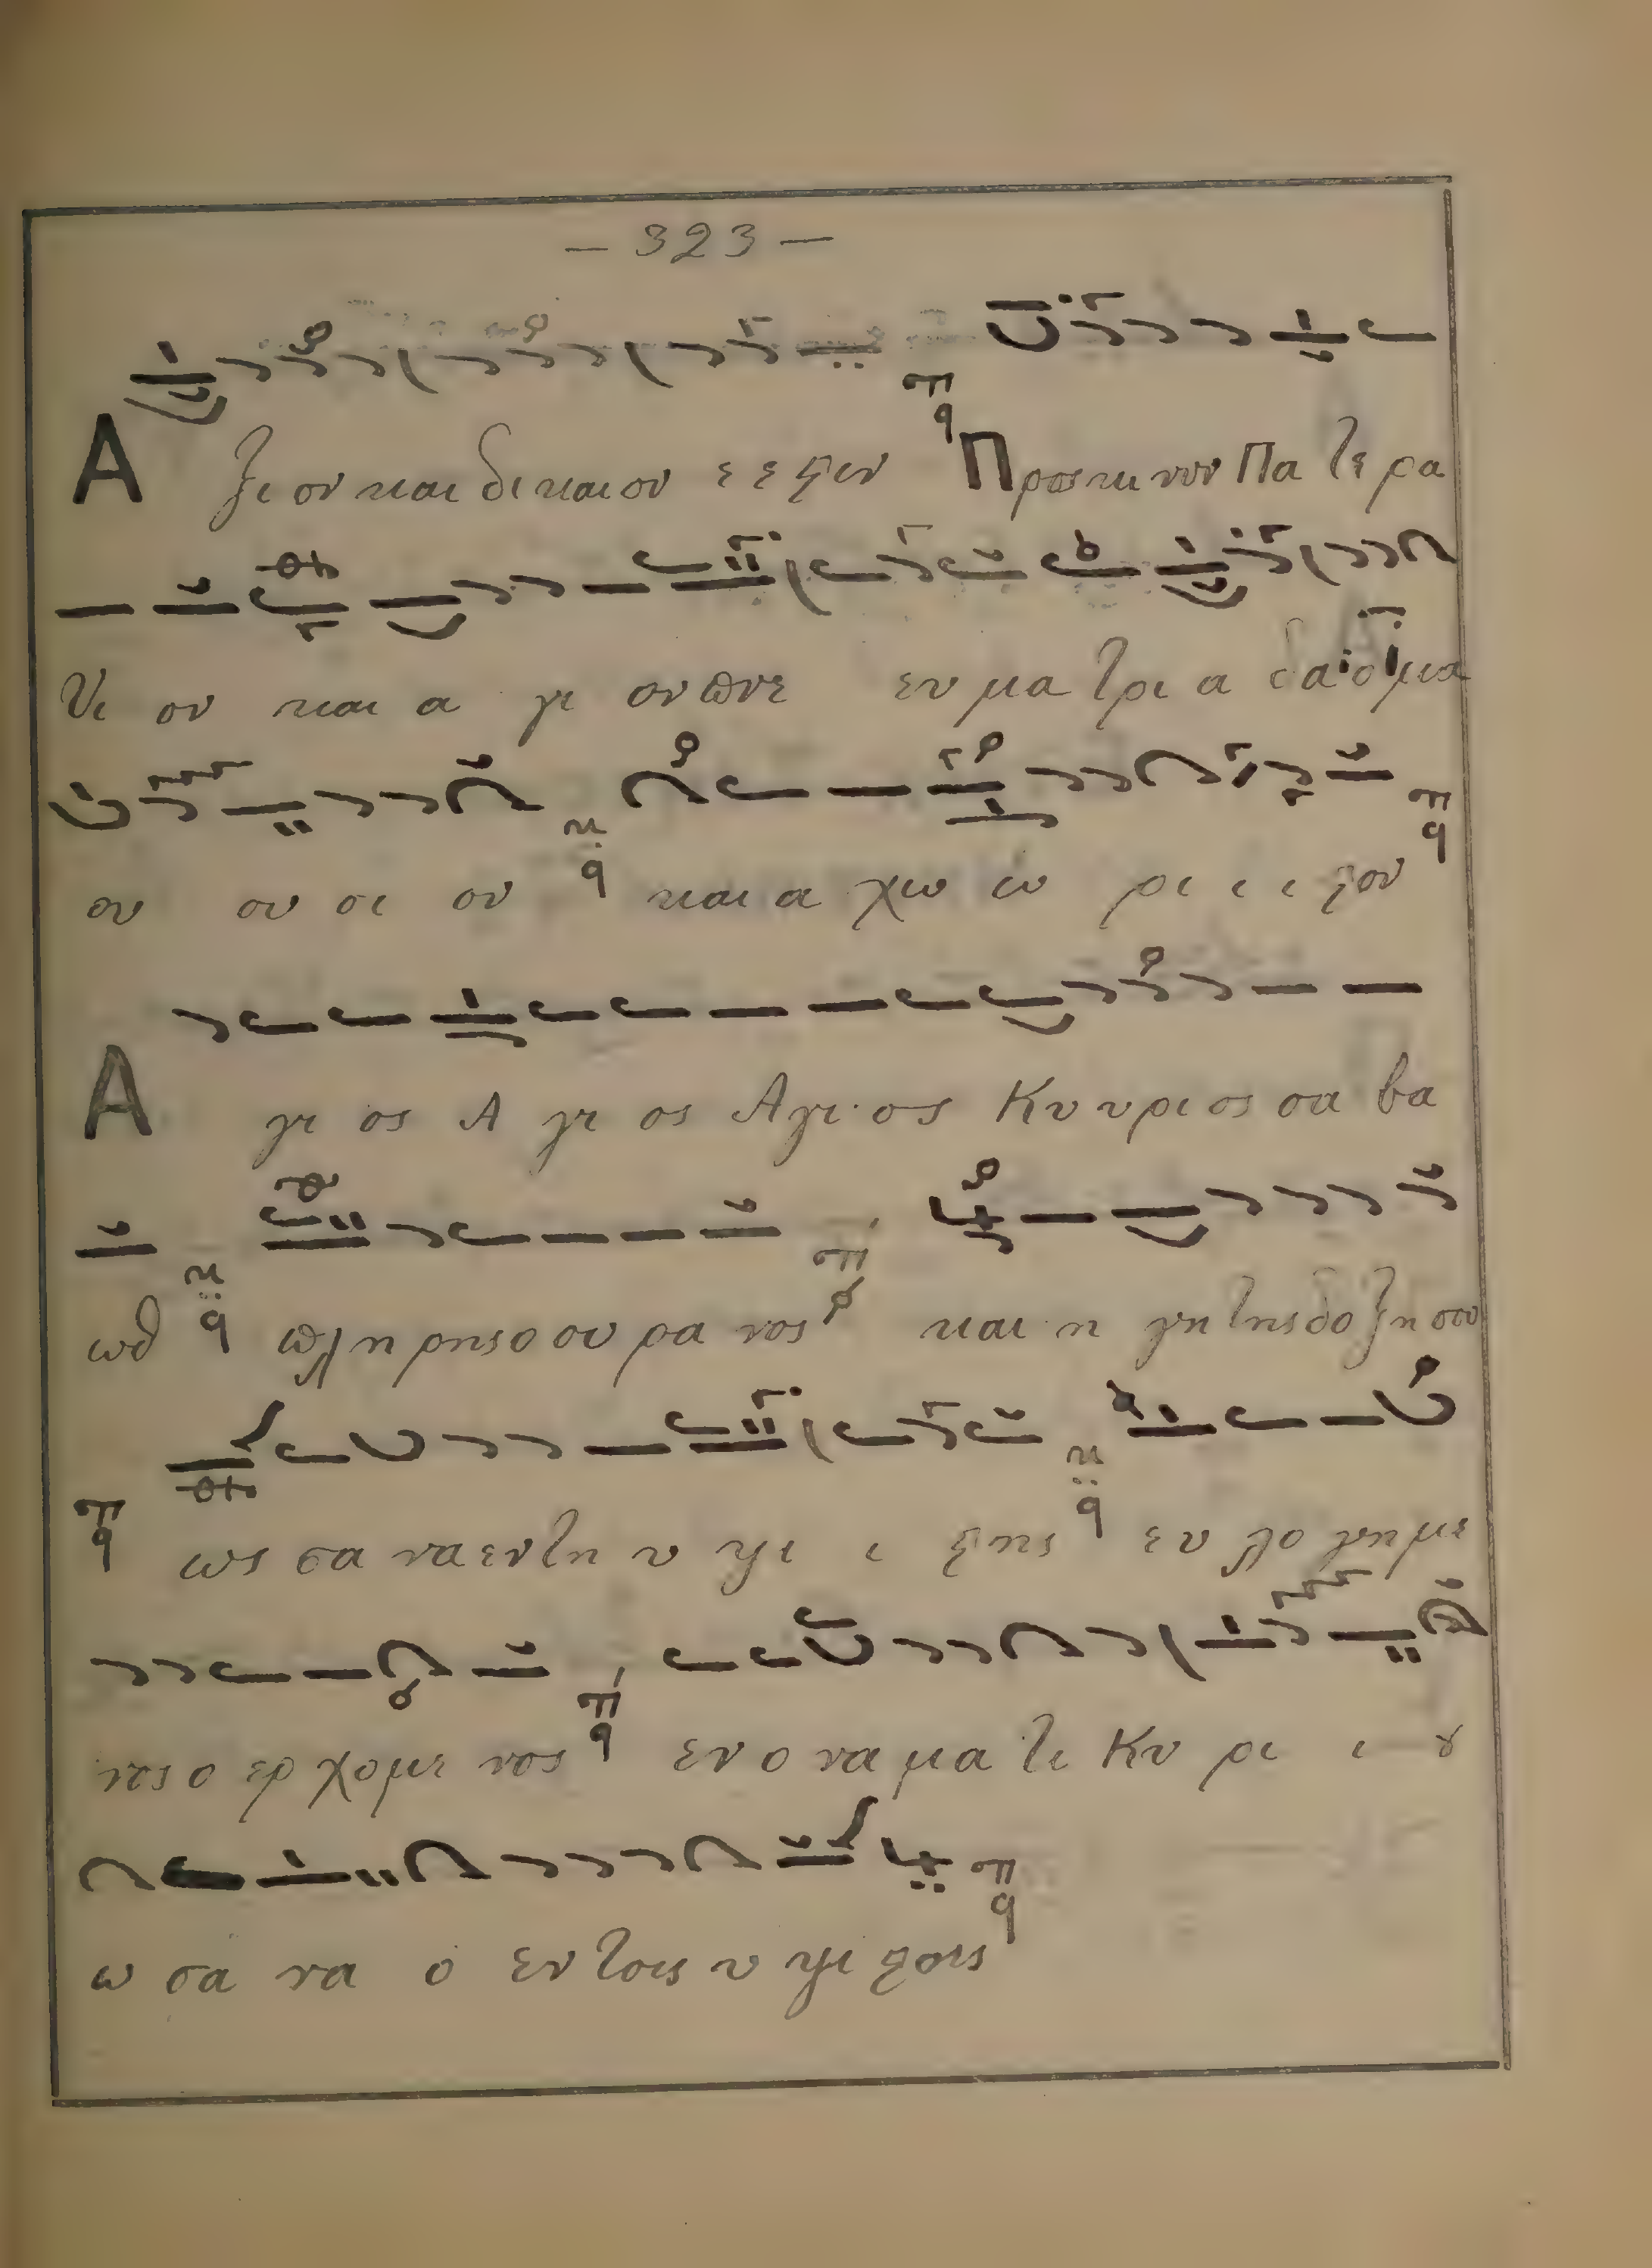 — 323 —
Α ξι ον και δι και ον ε ε ϛιν Προσκυ νου Πα τε ρα
Υι ον και α γι ον πνε ευ μα τρι α δα ο μο
ου ου σι ον και α χω ω ρι ι ι ϛον
Α γι ος Α γι ος Αγι ος Κυ υ ρι ος σα βα
ωθ πλη ρης ο ου ρα νος και η γη της δο ξη σου
ως σα να εν τη υ ψι ι ϛης ευ λο γη με
νος ο ερ χομε νος εν ο να μα τι Κυ ρι ι ȣ
ω σα να ο εν τοις υ ψι ϛοις